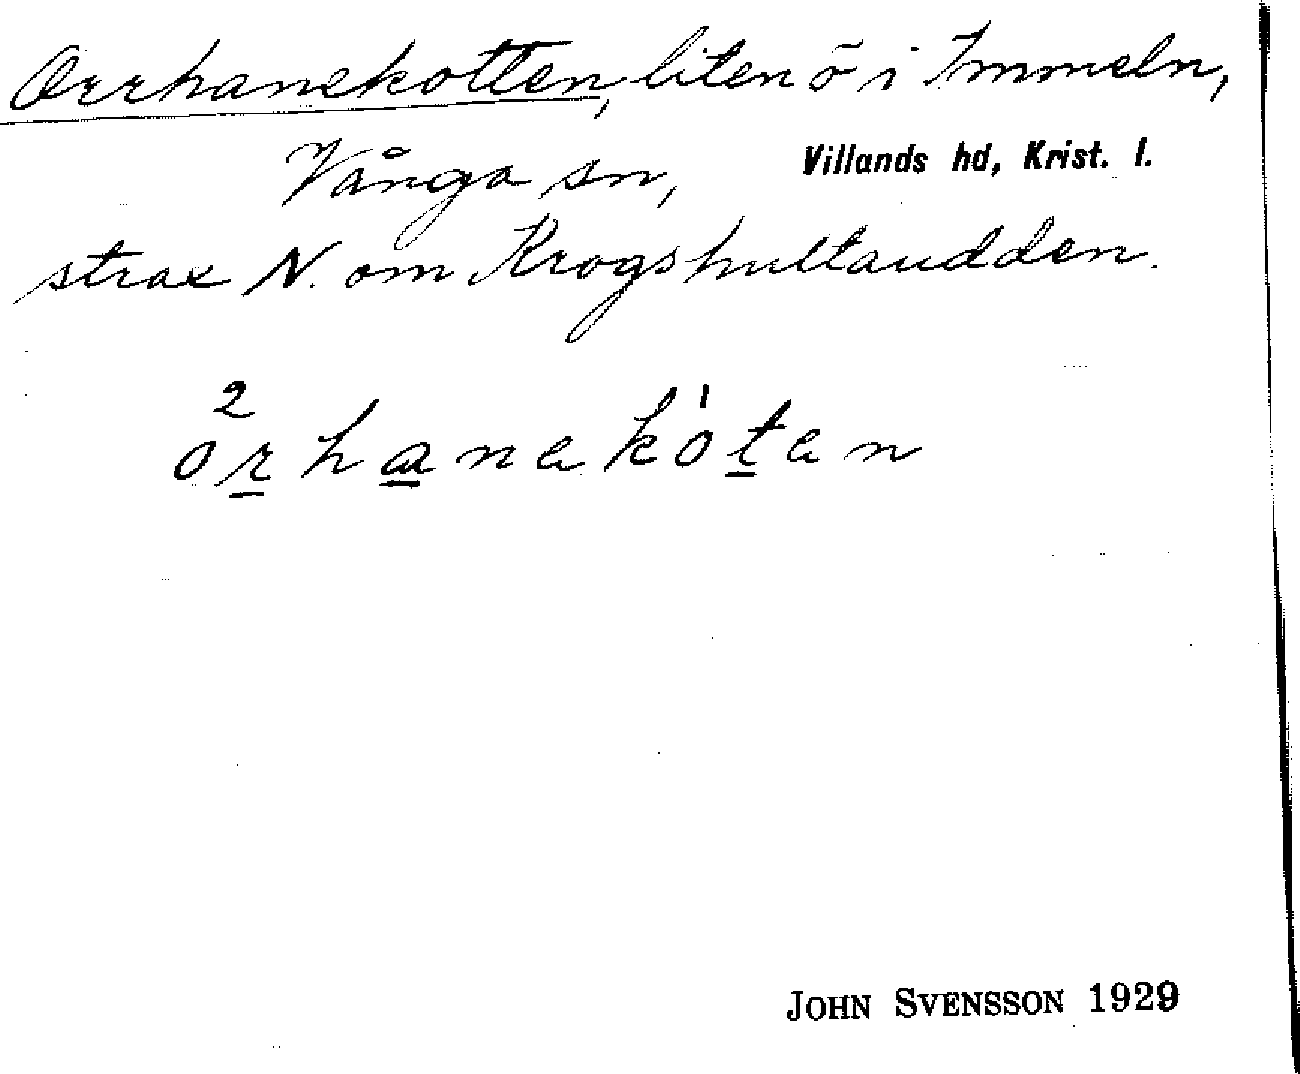 Orrhanekotten, liten ö i Immeln,
Vånga sn, Villands hd, Krist. l.
strax N. om Krogshultaudden.
2 1
orhanekotən
JOHN SVENSSON 1929